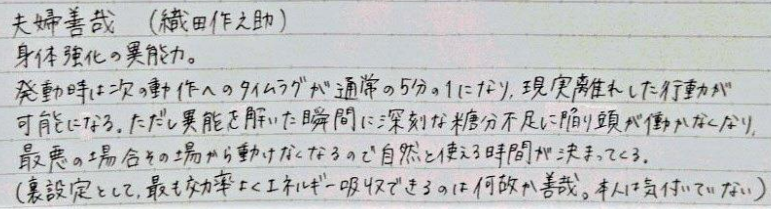 夫婦善哉 (織田作之助)
身体強化の異能力。
発動時は次の動作へのタイムラグが通常の5分の1になり、現実離れした行動が
可能になる。ただし異能を解いた瞬間に深刻な糖分不足に陥り頭が働かなくなり、
最悪の場合その場から動けなくなるので自然と使える時間が決まってくる。
(裏設定として、最も効率よくエネルギー吸収できるのは何故か善哉。本人は気付いていない)